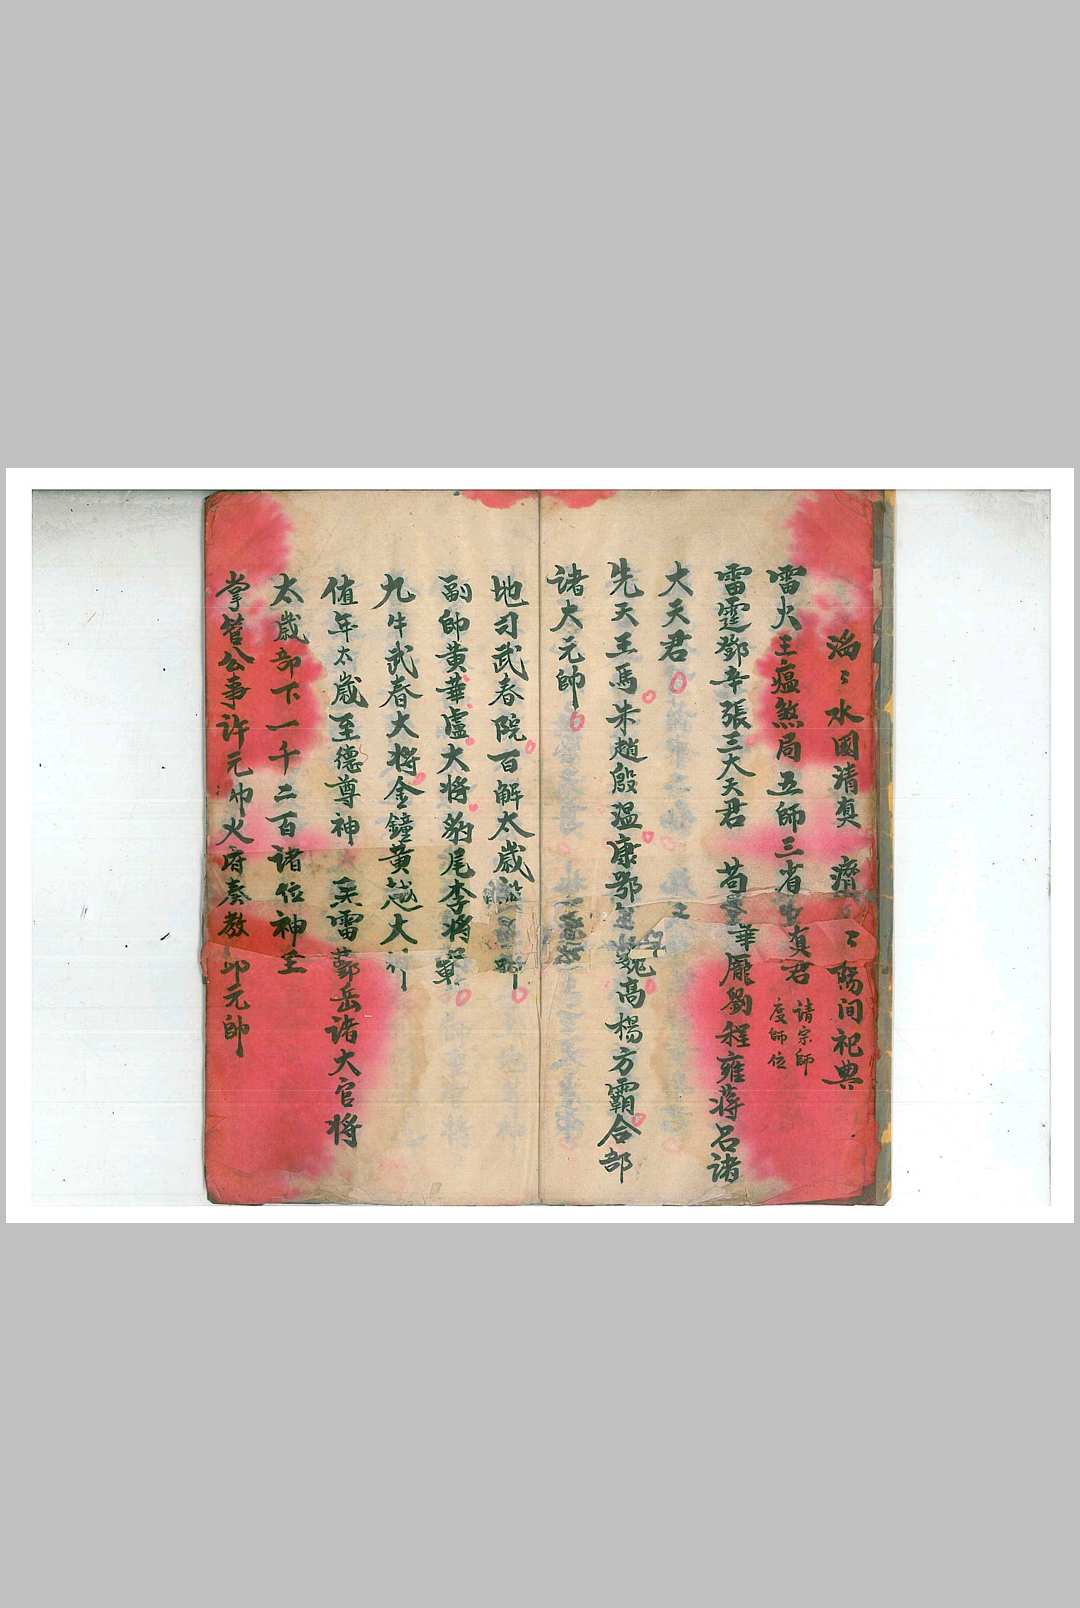 水國清真 濟 陽间祀典
雷火王瘟煞局五師三省真君
请宗師
度師位
雷霆鄧辛張三大天君 苟 華龐劉程雍蔣呂诸
大天君
先天王馬朱趙殷温康鄂 高楊方霸合部
诸大元帥
地司武春院百解太歲
副帥黄華盧大將豹尾李將軍
九牛武春大將金鐘黄越大
值年太歲至德尊神 雷鄧岳诸大官將
太歲部下一千二百诸位神王
掌管公事许元帅火府奏教 元帥